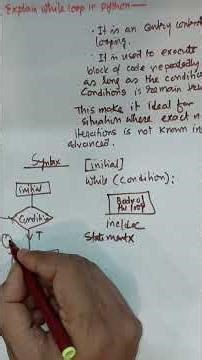 Explain while loop in Python—
• It is an entry control
looping.
• It is used to execute
block of code repeatedly
as long as the condition
Conditions is remain
This make it ideal for
situation where exact n
iterations is not known in
advanced.
Syntax
[initial]
while (condition):
Body of
the loop
inc/dec
Statementx
initial
Condition
T